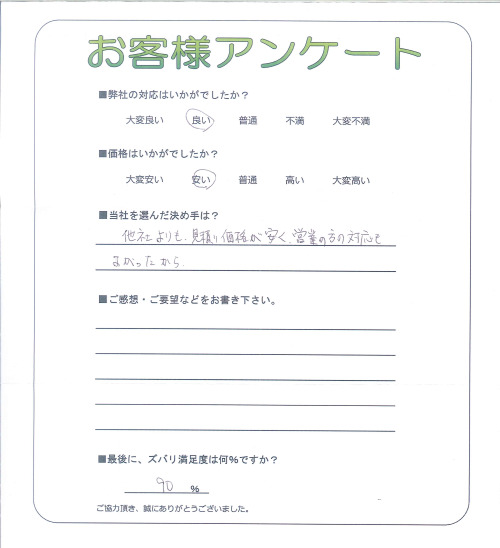 お客様アンケート
■弊社の対応はいかがでしたか？
大変良い 良い 普通 不満 大変不満
■価格はいかがでしたか？
大変安い 安い 普通 高い 大変高い
■当社を選んだ決め手は？
他社よりも、見積り価格が安く、営業の方の対応も
よかったから。
■ご感想・ご要望などをお書き下さい。
■最後に、ズバリ満足度は何％ですか？
90 %
ご協力頂き、誠にありがとうございました。